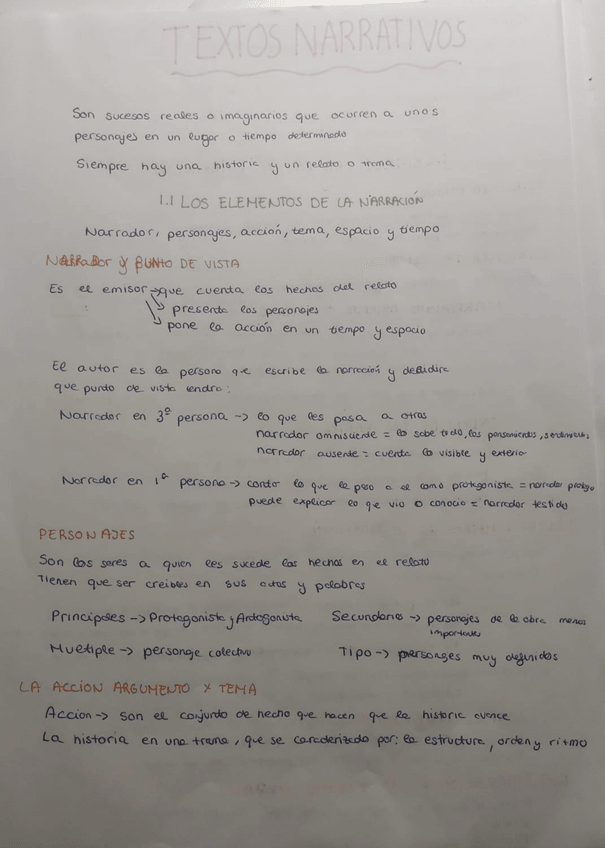 TEXTOS NARRATIVOS
Son sucesos reales o imaginarios que ocurren a unos
personajes en un lugar o tiempo determinado
Siempre hay una historia y un relato o trama
1.1 LOS ELEMENTOS DE LA NARRACIÓN
Narrador, personajes, acción, tema, espacio y tiempo
NARRADOR Y PUNTO DE VISTA
Es el emisor → que cuenta los hechos del relato
↘ presenta los personajes
↘ pone la acción en un tiempo y espacio
El autor es la persona que escribe la narración y decidira
que punto de vista tendra:
Narrador en 3ª persona → lo que les pasa a otros
narrador omnisciente = lo sabe todo, los pensamientos, sentimientos
narrador ausente = cuenta lo visible y exterior
Narrador en 1ª persona → contar lo que le pasa a el como protagonista = narrador protago
puede explicar lo que vio o conocio = narrador testido
PERSONAJES
Son los seres a quien les sucede los hechos en el relato
Tienen que ser creibles en sus actos y palabras
Principales → Protagonista y Antagonista
Secundario → personajes de la obra menos
importantes
Multiple → personaje colectivo
Tipo → personajes muy definidos
LA ACCION ARGUMENTO Y TEMA
Accion → son el conjunto de hecho que hacen que la historia avance
La historia en una trama, que se caracterizado por: la estructura, orden y ritmo